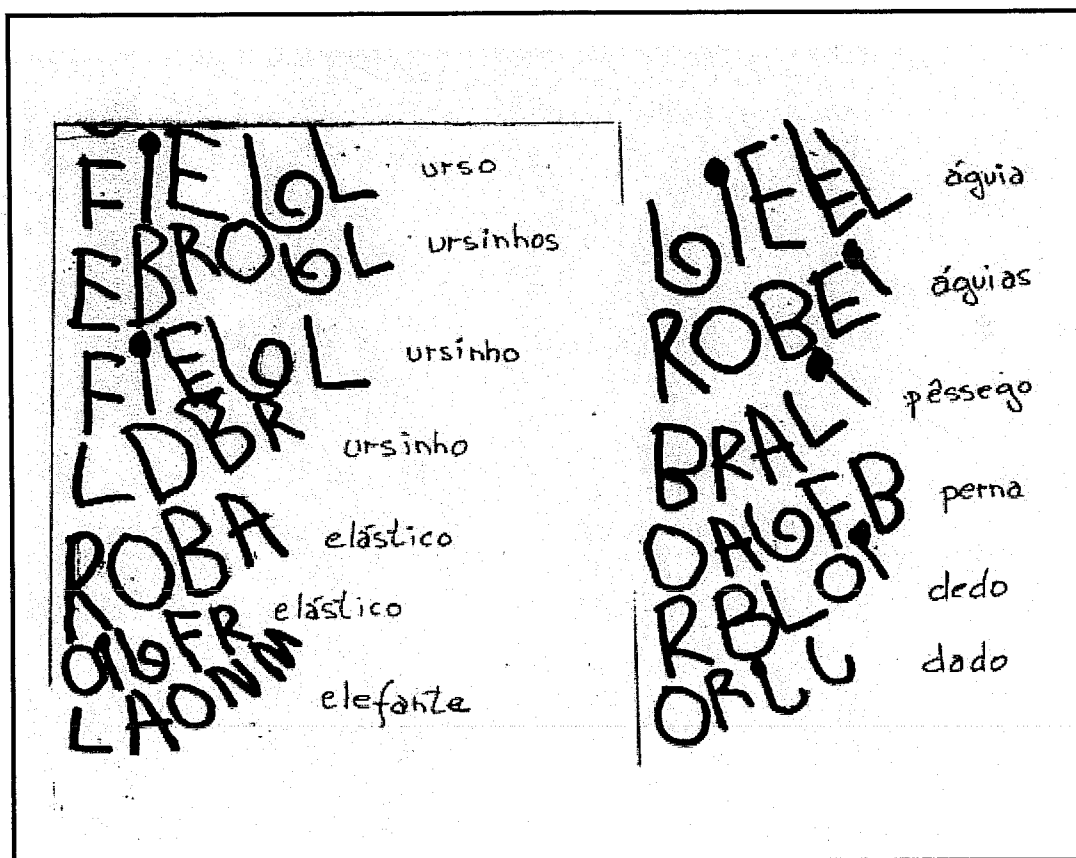 FiEGL urso
EBROGL ursinhos
FiEGOL ursinho
LDBR ursinho
ROBA elástico
elástico
LAONM elefante
GiEEL águia
ROBEi águias
BRALi pêssego
OAGFB perna
RBLOi dedo
dado